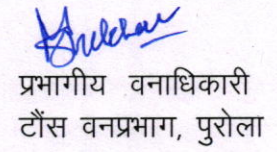 प्रभागीय वनाधिकारी
टौंस वनप्रभाग, पुरोला